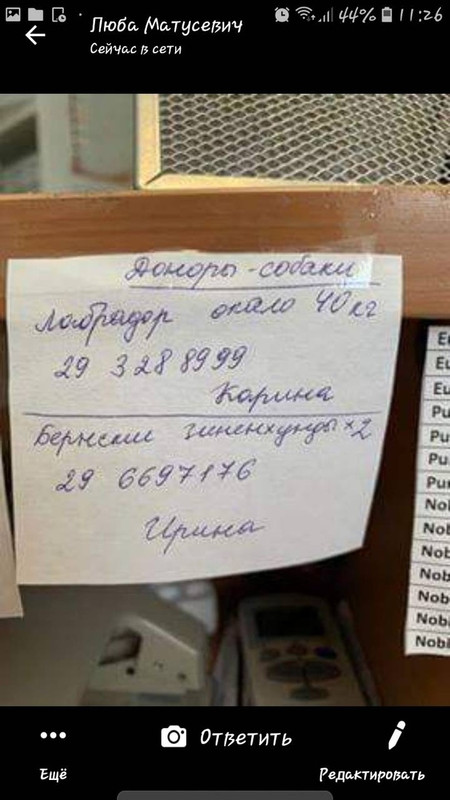 44% 11:26
Люба Матусевич
Сейчас в сети
Доноры-собаки
Лабрадор около 40 кг
29 328 8999
Карина
Бернские зиненхунды x 2
29 6697176
Ирина
Eu
Eu
Eu
Pu
Pu
Pu
Pu
Nol
Nob
Nob
Nob
Nob
Nobi
Nobi
Ответить
Ещё
Редактировать